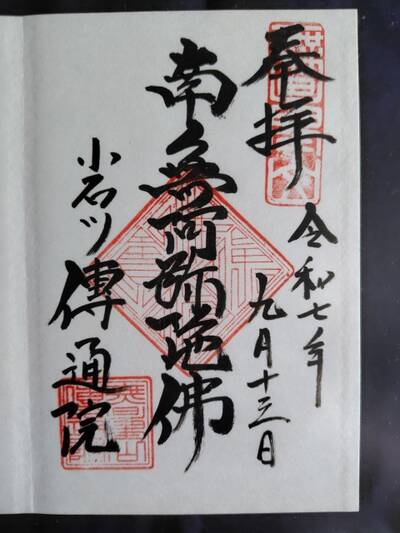 奉拝
令和七年
九月十三日
南無阿弥陀佛
小石川
傳通院